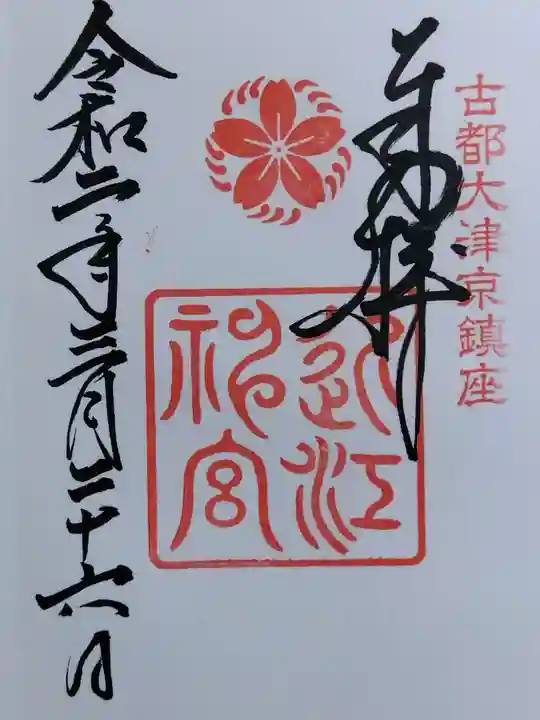 古都大津京鎮座
奉拝
近江
神宮
令和二年三月二十六日